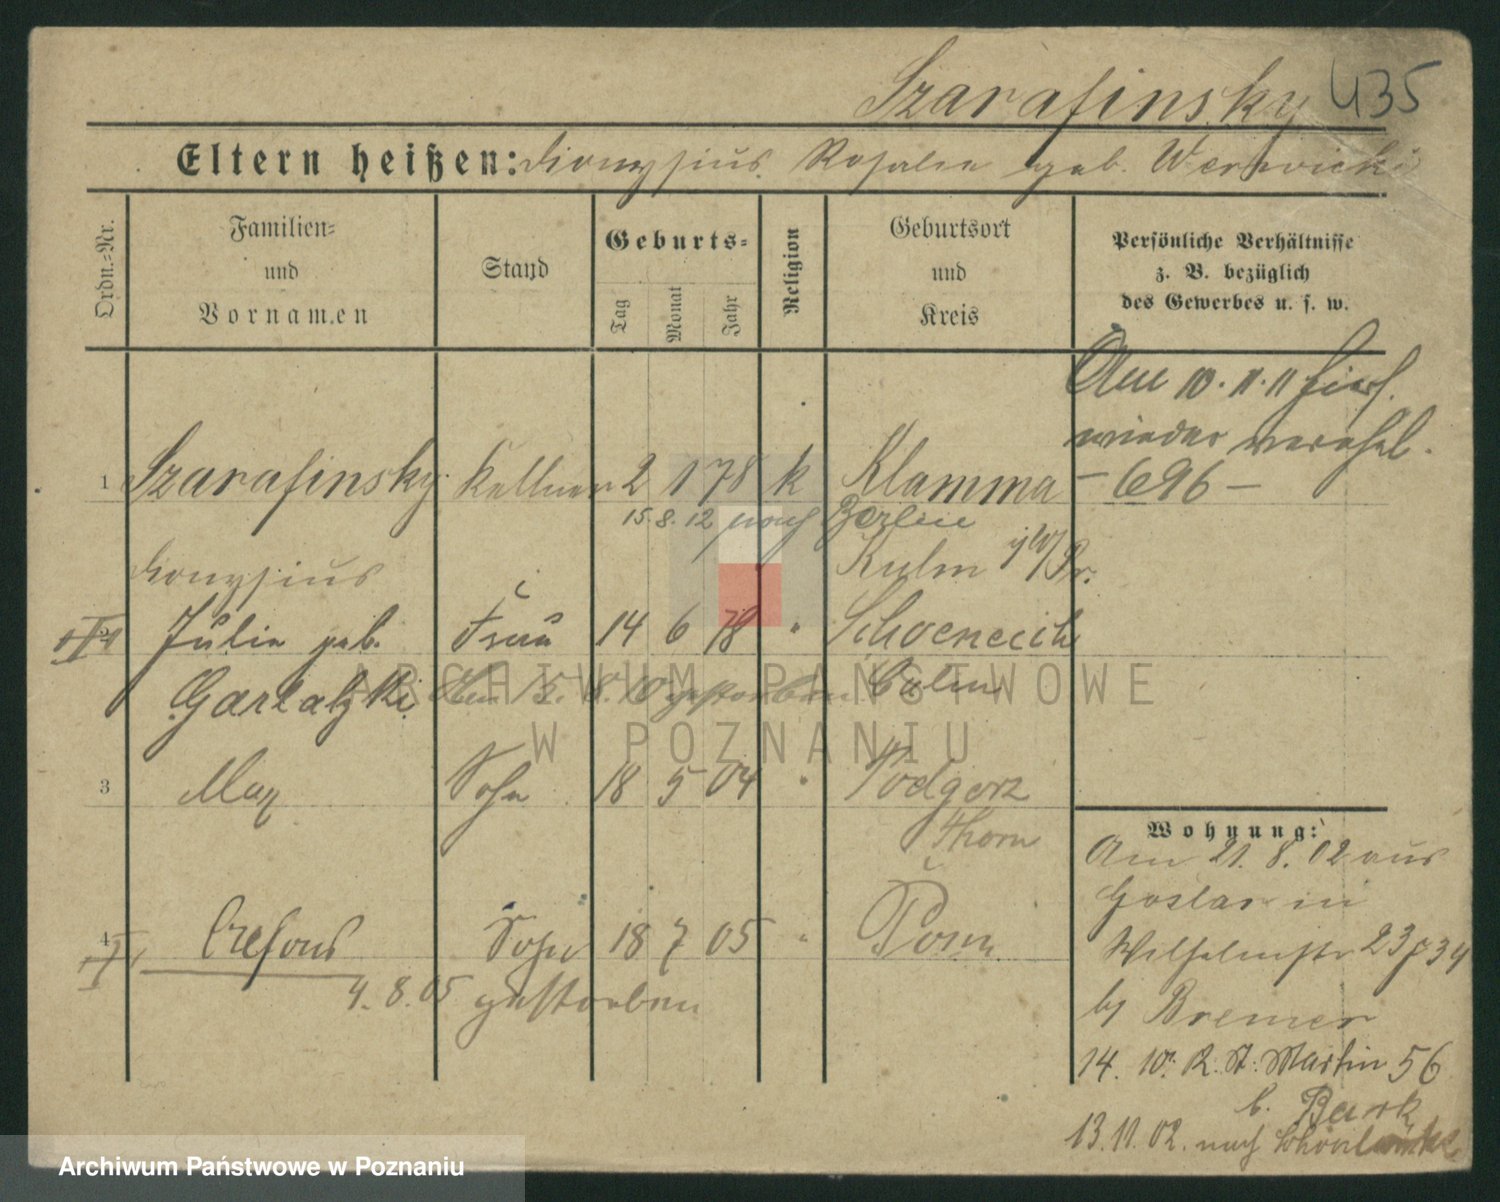 Szarafinsky 435
Eltern heißen: Dionysius. Rosalie geb. Werwicki
Ordn.-Nr.
Familien-
und
Vornamen
Stand
Geburts-
Tag
Monat
Jahr
Religion
Geburtsort
und
Kreis
Persönliche Verhältnisse
z. B. bezüglich
des Gewerbes u. s. w.
Am 10.11.11 hier
wieder verehel.
1 Szarafinsky Kellner 2 1 78 k Klamma - 696 -
15.8.12 nach Berlin
Dionysius Kulm W/Pr.
2 Julie geb. Frau 14 6 78 " Schoeneich
Garlatzki Am 15.8.10 gestorben Culm
3 Max Sohn 18 5 04 " Podgorz
Thorn
4 Sohn 18 7 05 " Posen
4.8.05 gestorben
Wohnung:
Am 21.8.02 aus
Goslar in
Wilhelmstr 23
by Bremer
14. 10. R. St. Martin 56
b. Bark
13.11.02. nach
ARCHIWUM PAŃSTWOWE
W POZNANIU
Archiwum Państwowe w Poznaniu